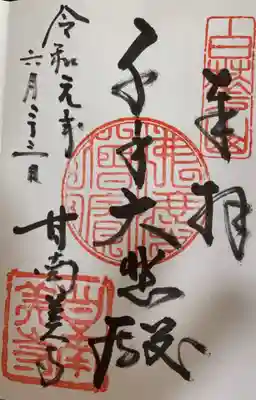 奉拝
千手大悲殿
甘南美寺
令和元年
六月二十三日
甘南美寺